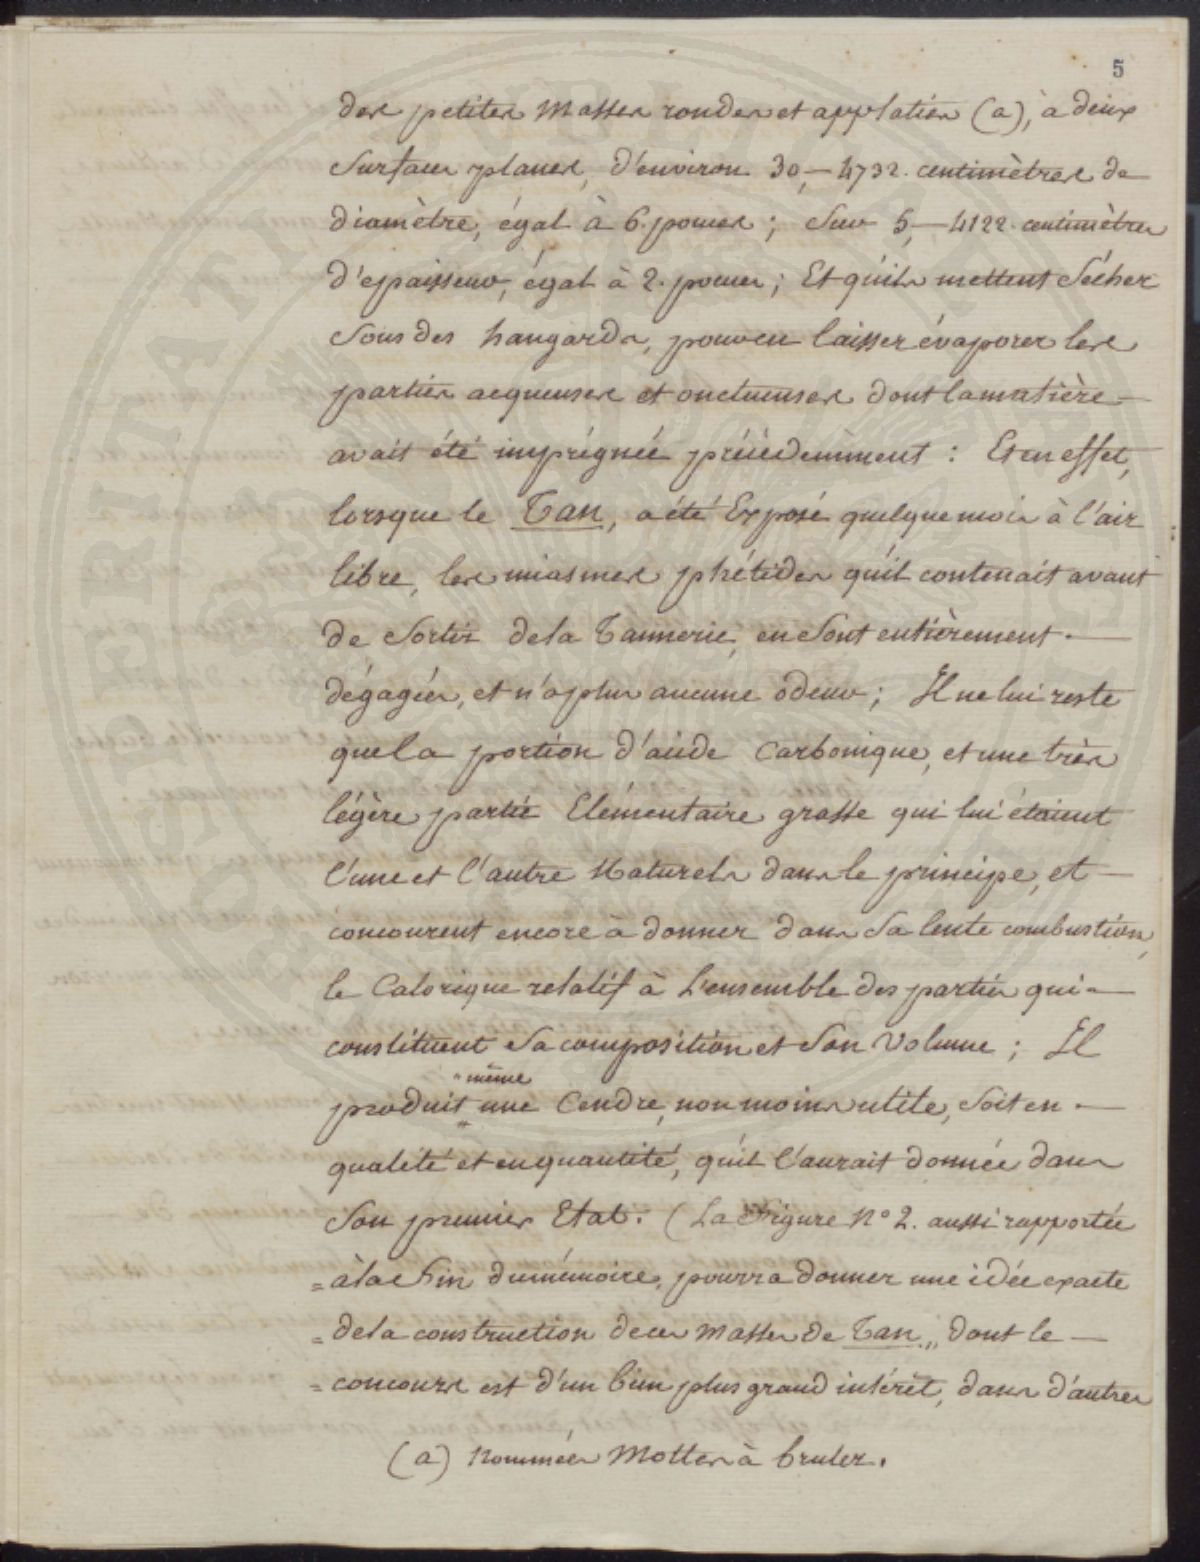 5
des petites Masses rondes et applaties (a), à deux
Surfaces planes, d'environ 30,—4732. centimètres de
diamètre, égal à 6. pouces ; Sur 5,—4122. centimètres
d'epaisseur, égal à 2. pouces ; Et qu'ils mettent Sécher
Sous des hangards, pour en laisser évaporer les
parties acqueuses et onctueuses dont la matière —
avait été imprégnée précédemment : Et en effet,
lorsque le Tan, a été Exposé quelque mois à l'air
libre, les miasmes phétides qu'il contenait avant
de Sortir de la Tannerie, en Sont entièrement . —
dégagées, et n'a plus aucune odeur ; Il ne lui reste
que la portion d'acide Carbonique, et une très
légère partie Elémentaire grasse qui lui étaient
l'une et l'autre Naturels dans le principe, et —
concourent encore à donner dans Sa lente combustion,
le Calorique relatif à L'ensemble des parties qui —
constituent Sa composition et Son Volume ; Il
" même
produit " une Cendre, non moins utile, Soit en . —
qualité et en quantité, qu'il l'aurait donnée dans
Son premier Etat. (La Figure N° 2. aussi rapportée
= à la Fin du mémoire, pourra donner une idée exacte
= de la construction de ces Masses de Tan,, dont le —
= concours est d'un bien plus grand intérêt, dans d'autres
(a) Nommées Mottes à bruler.
SOPERITATI PUBLICA